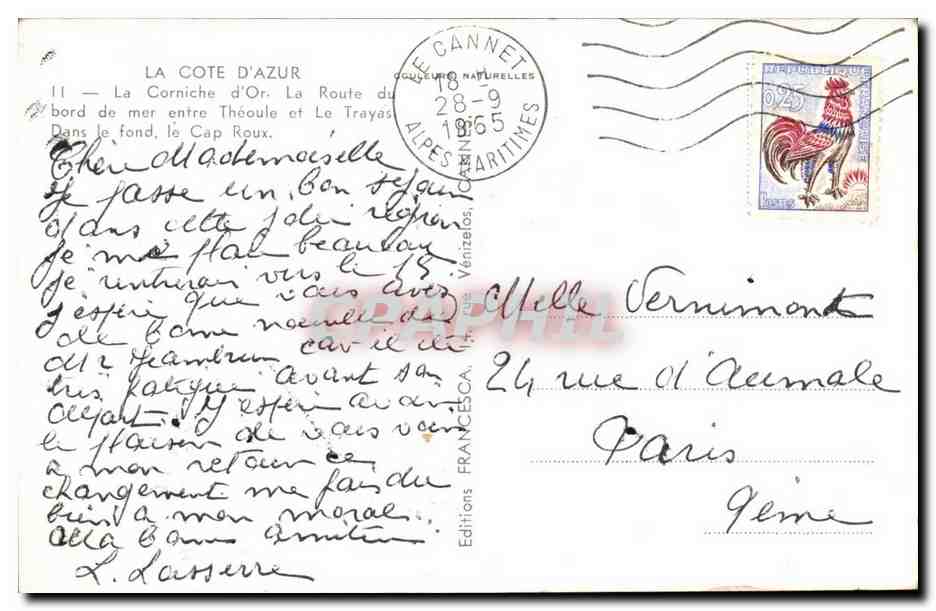 LA COTE D'AZUR
11 — La Corniche d'Or. La Route du
bord de mer entre Théoule et Le Trayas
Dans le fond, le Cap Roux.
COULEURS NATURELLES
LE CANNET
18
28-9
1965
ALPES MARITIMES
REPUBLIQUE FRANCAISE
0,25
POSTES
Chère Mademoiselle
Je passe un bon séjour
dans cette jolie région
je me plais beaucoup
je rentrerai vers le 15
J'espère que vous avez
de bonne nouvelle de
Mr car il été
très fatigué avant son
départ. J'espère avoir
le plaisir de vous voir
a mon retour ce
changement me fais du
bien a mon moral.
Ma bonne Amitié
L. Lasserre
Editions FRANCESCA, 14, rue Vénizelos, CANNES
CPAPHIL
Melle Vernimont
24 rue d'Aumale
Paris
9ème